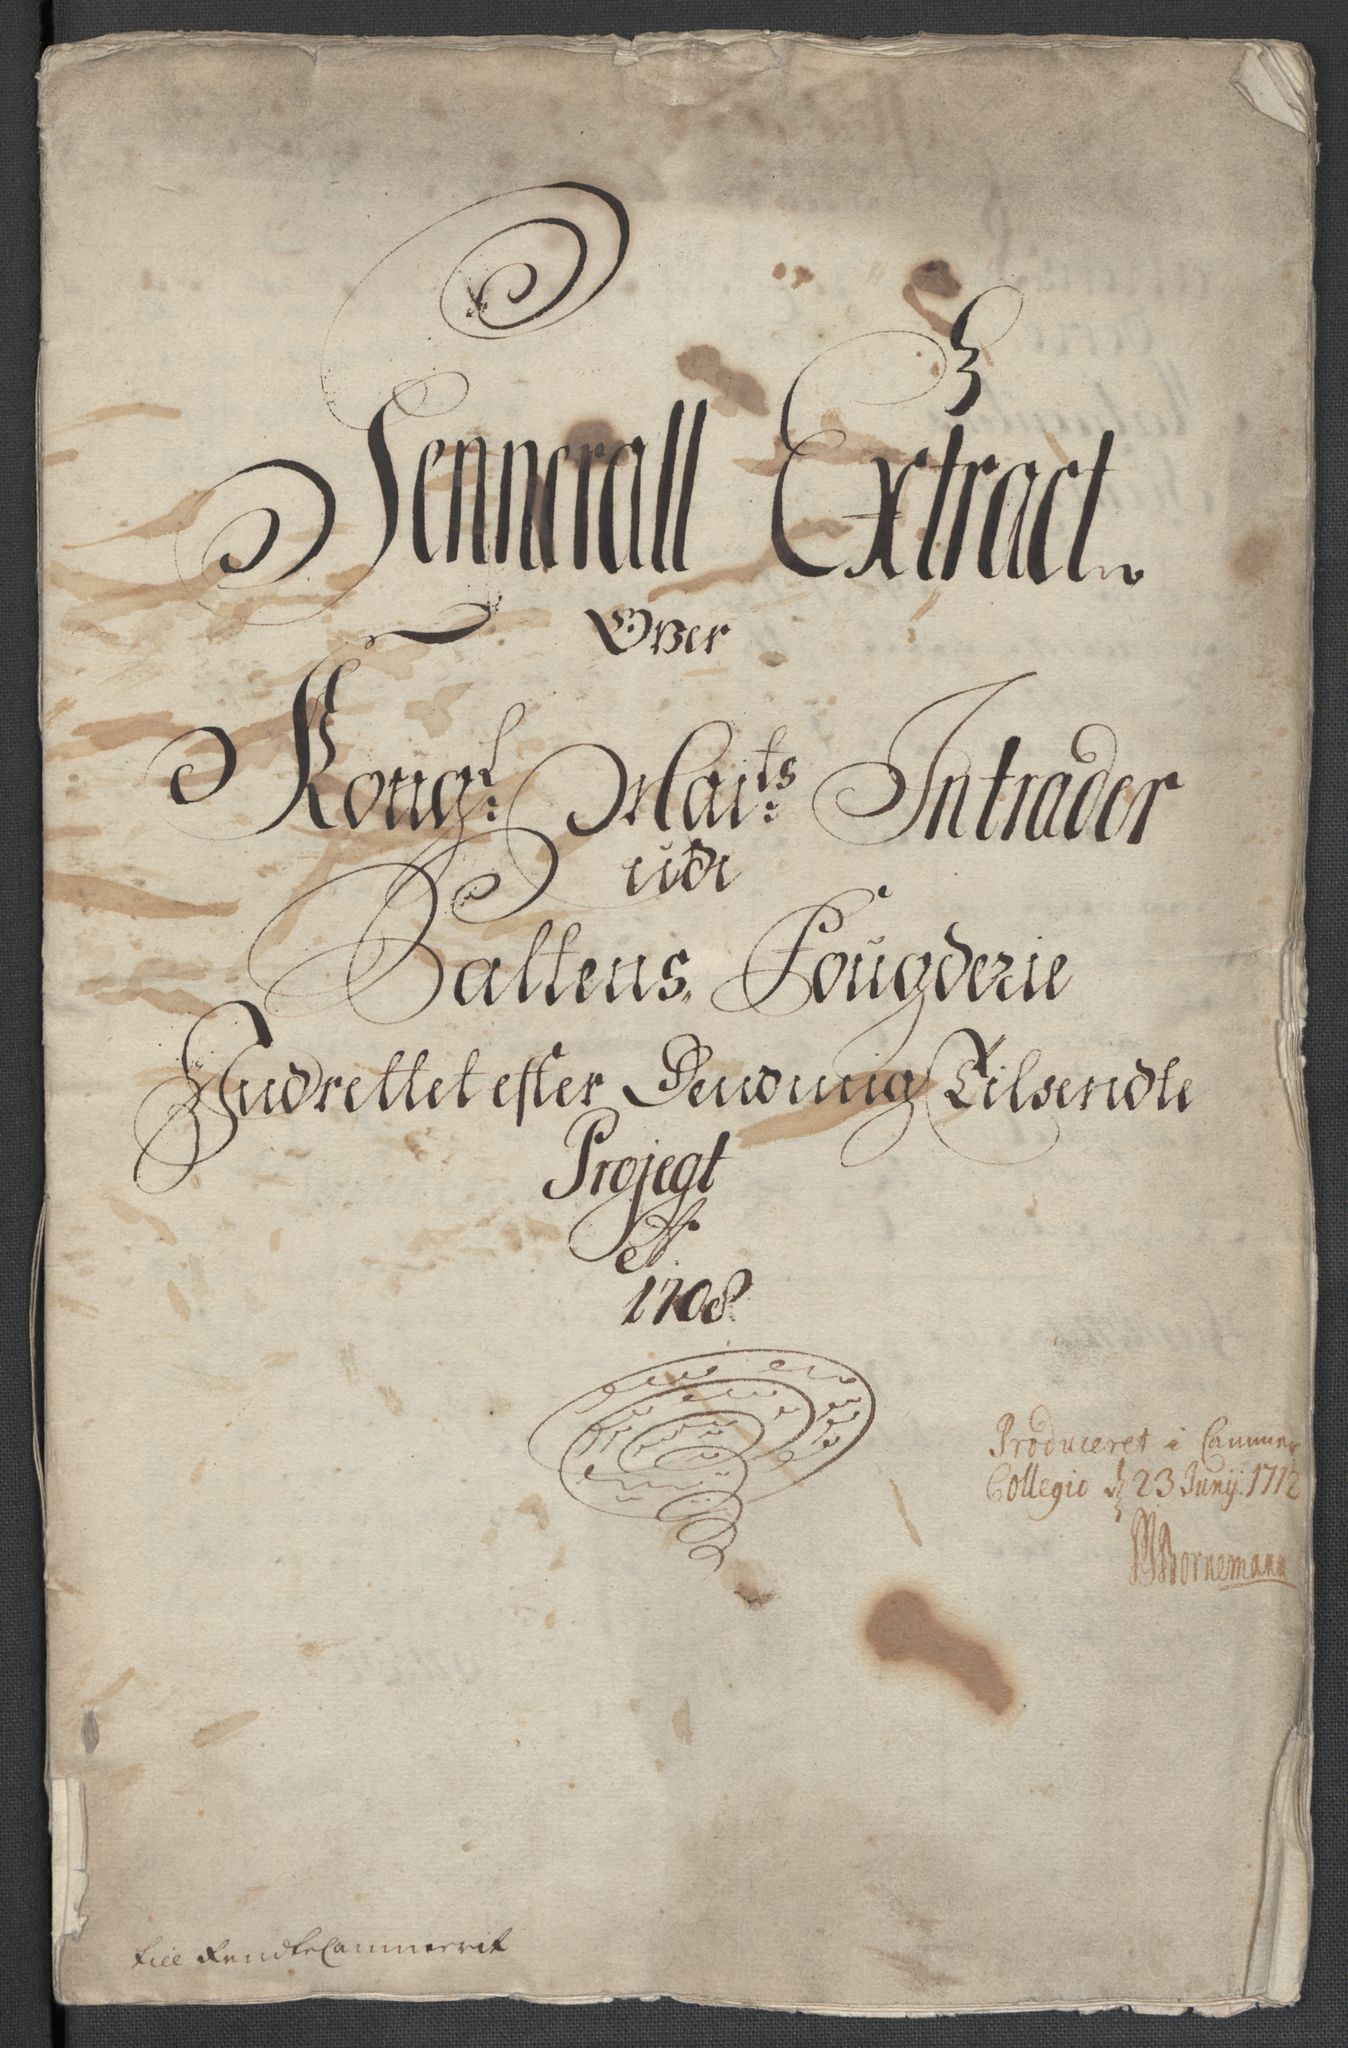 Jennerall Extract
Over
Kongl: Maits: Intrader
udi
Saltens Fougderie
Indrettet efter Denomig Tilsendte
Projegt
Ao
1708
Produceret i Cammer
Collegio d 23 Junij 1712
Bornemann
till RendteCammerret